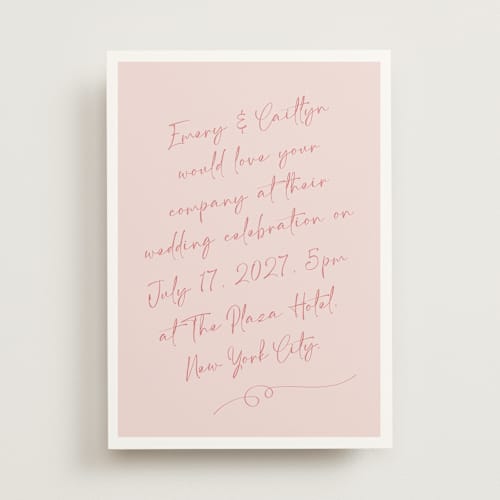 Emery & Caitlyn
would love your
company at their
wedding celebration on
July 17, 2027, 5pm
at The Plaza Hotel,
New York City.